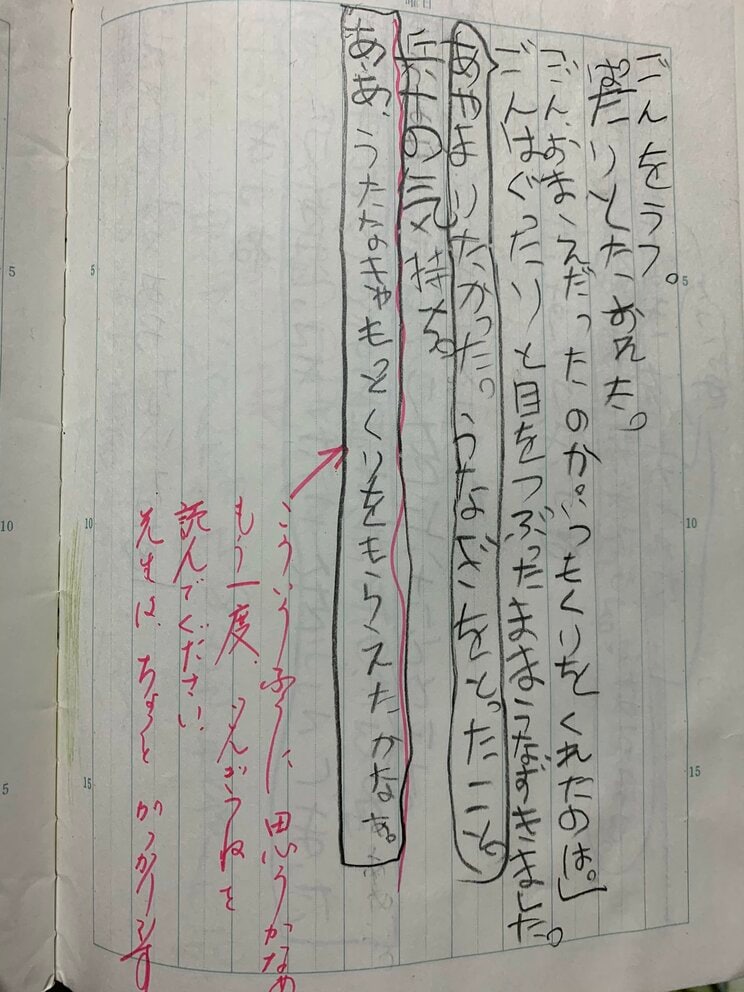 曜日
ごんをうつ。
ぱたりとたおれた。
ごん、おまえだったのか。いつもくりをくれたのは。」
ごんはぐったりと目をつぶったままうなずきました。
あやまりたかった。うなぎをとったこと。
兵十の気持ち。
ああ、うたなきゃもっとくりをもらえたかなぁ。
こういうふうに思うかなぁ
もう一度、ごんぎつねを
読んでください。
先生は、ちょっとがっかりです
5
10
15
5
10
15
5
10
5